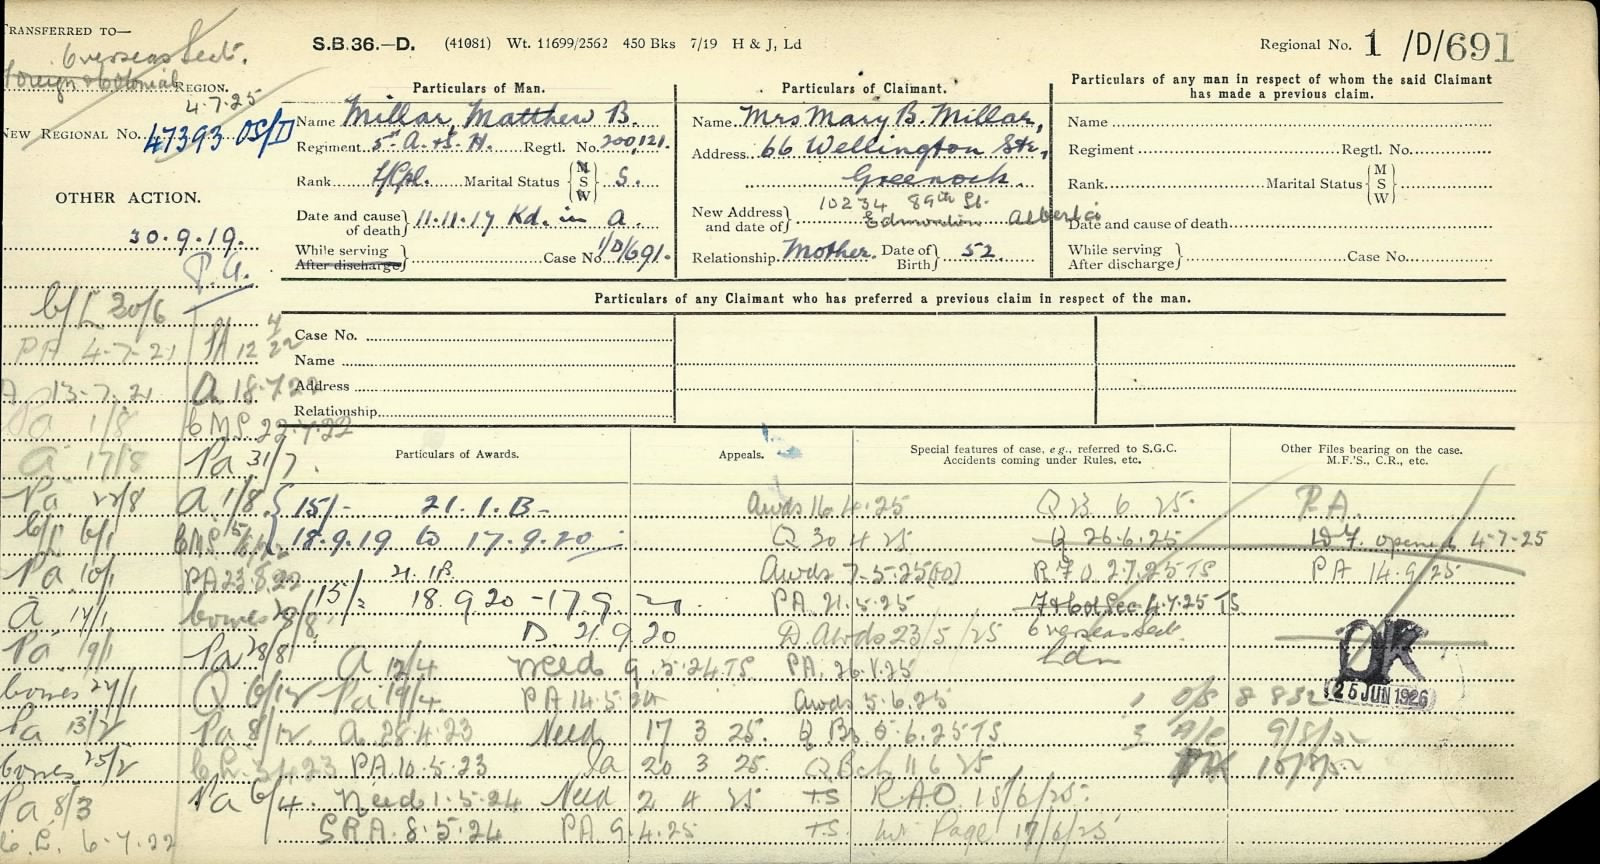 TRANSFERRED TO—
Overseas Sect.
Foreign & Colonial REGION.
4.7.25
NEW REGIONAL No. 47393 OS/D
OTHER ACTION.
30.9.19.
P.A.
30/6
PA 4-7-21
PA 12 4/22
13-7-21
A 18.7.22
Pa 1/8
22.7.22
A 17/8
Pa 31/7.
Pa 22/8
A 1/8
6/1
Pa 10/1
PA 23.8.22
A 17/1
Pa 19/1
Pa 28/8
27/1
Q 6/12
Pa 13/2
Pa 8/12
25/2
Pa 8/3
Pa 6/4.
6.7.22
S.B.36.—D. (41081) Wt. 11699/2562 450 Bks 7/19 H & J, Ld
Regional No. 1 /D/691
Particulars of Man.
Name Millar, Matthew B.
Regiment 5th A. & S. H. Regtl. No. 200,121.
Rank L/Cpl. Marital Status {M S W} S.
Date and cause of death} 11.11.17 Kd. in A.
While serving
After discharge} Case No. 1/D/691.
Particulars of Claimant.
Name Mrs Mary B. Millar,
Address 66 Wellington Str,
Greenock.
New Address and date of} 10234 89th St.
Edmonton Alberta
Relationship Mother. Date of Birth} 52.
Particulars of any man in respect of whom the said Claimant
has made a previous claim.
Name
Regiment Regtl. No.
Rank Marital Status {M S W}
Date and cause of death
While serving
After discharge} Case No.
Particulars of any Claimant who has preferred a previous claim in respect of the man.
Case No.
Name
Address
Relationship
Particulars of Awards.
Appeals.
Special features of case, e.g., referred to S.G.C.
Accidents coming under Rules, etc.
Other Files bearing on the case.
M.F.'S., C.R., etc.
15/- 21.1.B-
Awds 16.4.25
Q 23 6 25
P.A.
18.9.19 to 17.9.20
Q 30 4 25
Q 26.6.25
D.F. opened 4-7-25
21.1B
Awds 7-5-25
R.F.O. 2.7.25 TS
PA 14.9.25
15/= 18.9.20 - 17.9.21
PA 21.5.25
4.7.25 TS
D 21.9.20
D. Awds 23/5/25
Overseas Sect.
Ldn
A 12/4 Need 9.5.24 TS PA. 26.5.25
Pa 19/4 PA 14.5.24 Awds 5.6.25
1 O/S 8 832
OR
25 JUN 1926
A 28.4.23 Need 17 3 25. 5.6.25 TS
3 A/c 9/8/22
PA 10.5.23 Pa 20 3 25. 11 6 25
Need 1.5.24 Need 2 4 25 TS R.A.O. 15/6/25.
S.R.A. 8.5.24 PA 9.4.25 TS. Page 17/6/25